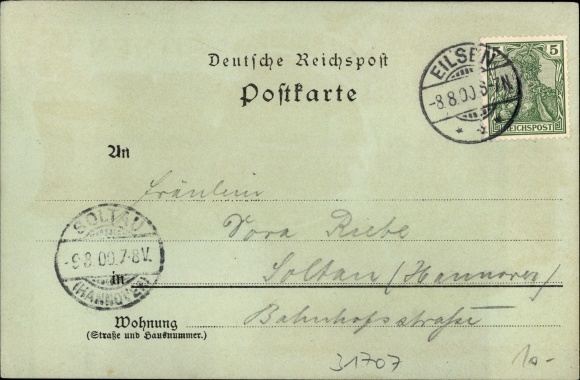 Deutsche Reichspost
Postkarte
EILSEN
-8.8.00 6-7N.
5 5
REICHSPOST
An
Fräulein
Dora Riebe
SOLTAU
-9.8.00.7-8V.
(HANNOVER)
in Soltau (Hannover)
Wohnung Bahnhofsstraße
(Straße und Hausnummer.)
31707
10-